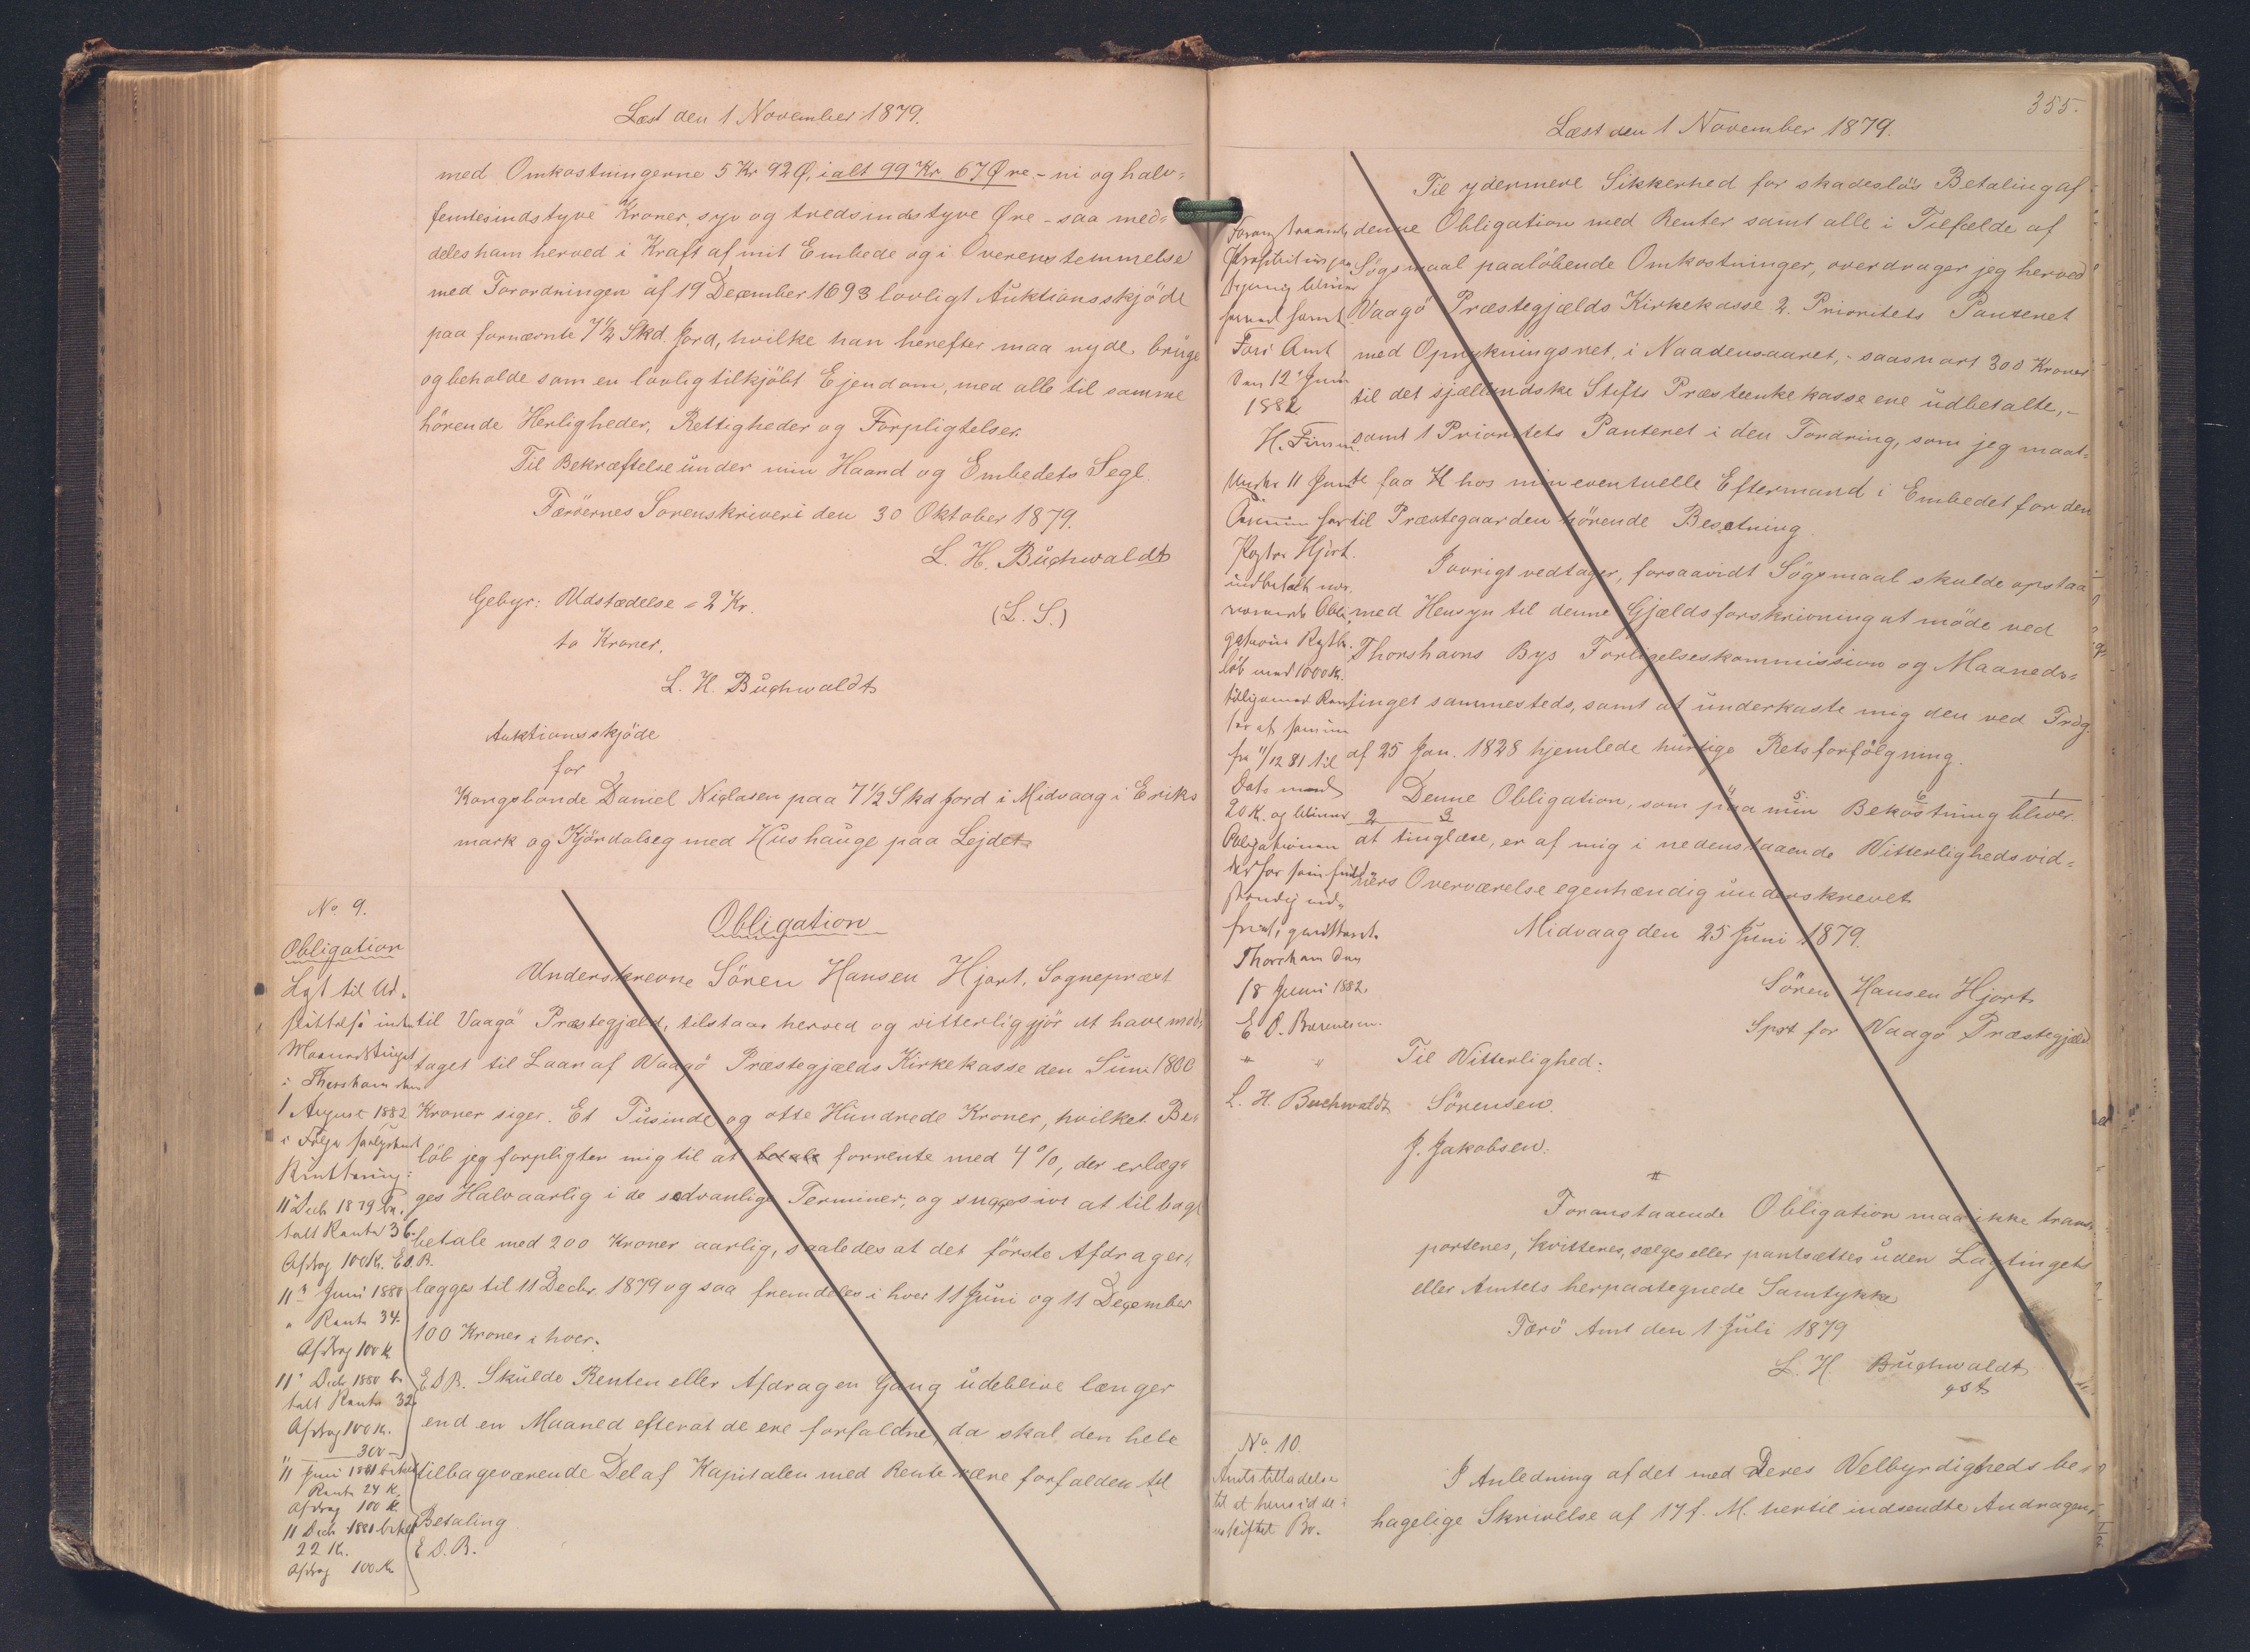 Læst den 1 November 1879.
med Omkostningerne 5 Kr 92 Ø, ialt 99 Kr 67 Øre - ni og halv-
femtesindstyve Kroner, syv og tredsindstyve Øre - saa med-
deles ham herved i Kraft af mit Embede og i Overensstemmelse
med Forordningen af 19 December 1693 lovligt Auktionsskjöde
paa fornævnte 7 1/2 Skd. Jord, hvilke han herefter maa nyde, bruge
og beholde som en lovlig tilkjöbt Ejendom, med alle til samme
hörende Herligheder, Rettigheder og Forpligtelser.
Til Bekræftelse under min Haand og Embedets Segl.
Færöernes Sorenskriveri den 30 Oktober 1879.
L. H. Buchwaldt
Gebyr: Udstædelse = 2 Kr.
(L. S.)
to Kroner.
L. H. Buchwaldt
Auktionsskjöde
for
Kongsbonde Daniel Niclasen paa 7 1/2 Skd Jord i Midvaag i Eriks
mark og Kjördalseg med Hushauge paa Lejdet
No 9.
Obligation
Lyst til Ud-
slettelse inden
Maanedstinget
i Thorshavn den
1 August 1882
i Følge saalydende
Kvittering:
11 Decb 1879 be-
talt Rente 36.
Afdrag 100 K. E.D.B.
11 Juni 1880
" Rente 34
Afdrag 100 K
11 Decb 1880 be
talt Rente 32
Afdrag 100 K.
300 -
11 Juni 1881 betalt
Rente 24 K.
Afdrag 100 K
11 Decb 1881 betalt
22 K.
Afdrag 100 K
E.D.B.
E.D.B.
Obligation
Underskrevne Sören Hansen Hjort, Sognepræst
til Vaagö Præstegjæld, tilstaar herved og vitterliggjör at have mod-
taget til Laan af Vaagö Præstegjælds Kirkekasse den Sum 1800
Kroner siger. Et Tusinde og otte Hundrede Kroner, hvilket Be-
löb jeg forpligter mig til at betale forrente med 4%, der erlæg-
ges Halvaarlig i de sedvanlige Terminer, og succesive at tilbage
betale med 200 Kroner aarlig, saaledes at det förste Afdrag er-
lægges til 11 Decbr. 1879 og saa fremdeles i hver 11 Juni og 11 December
100 Kroner i hver.
Skulde Renten eller Afdragen Gang udeblive længer
end en Maaned efterat de ere forfaldne, da skal den hele
tilbageværende Del af Kapitalen med Rente være forfalden til
Betaling
355.
Læst den 1 November 1879.
Til ydermere Sikkerhed for skadeslös Betaling af
denne Obligation med Renter samt alle i Tilfælde af
Sögsmaal paalöbende Omkostninger, overdrager jeg herved
Vaagö Præstegjælds Kirkekasse 2. Prioritets Panteret
med Oprykningsret, i Naadensaaret, - saasnart 300 Kroner
til det sjællandske Stifts Præsteenkekasse ere udbetalte, -
samt 1 Prioritets Panteret i den Fordring, som jeg maat-
te faa H hos min eventuelle Eftermand i Embedet for den
til Præstegaarden hörende Besetning.
Jovrigt vedtager, forsaavidt Sögsmaal skulde opstaa
med Hensyn til denne Gjældsforskrivning at möde ved
Thorshavns Bys Forligelseskommission og Maaneds-
tinget sammesteds, samt at underkaste mig den ved Frdg.
af 25 Jan. 1828 hjemlede hurtige Retsforfölgning.
Denne Obligation, som paa min Bekostning bliver
at tinglæse, er af mig i nedenstaaende Vitterlighedsvid-
ners Overværelse egenhændig underskrevet
Midvaag den 25 Juni 1879.
Sören Hansen Hjort
Spst for Vaagö Præstegjæld
Til Vitterlighed:
Sörensen.
J. Jakobsen.
Foranstaaende Obligation maa ikke trans-
porteres, kvitteres, sælges eller pantsættes uden Lagtingets
eller Amtets herpaategnede Samtykke
Færö Amt den 1 Juli 1879
L. H. Buchwaldt
cst
Foranstaaende
Færö Amt
den 12 Juni
1882
H. Finsen
11 Juni
Hjort.
løb med 1000 K.
fra 11/12 81 til
Dato med
20 K. og bliver
Obligationen
Thorshavn den
18 Juni 1882.
E D. Bærentsen.
L. H. Buchwaldt
No. 10.
Amts tilladelse
til at hensidde i
uskiftet Bo.
I Anledning af det med Deres Velbyrdigheds be-
hagelige Skrivelse af 17 f. M. hertil indsendte Andragen-